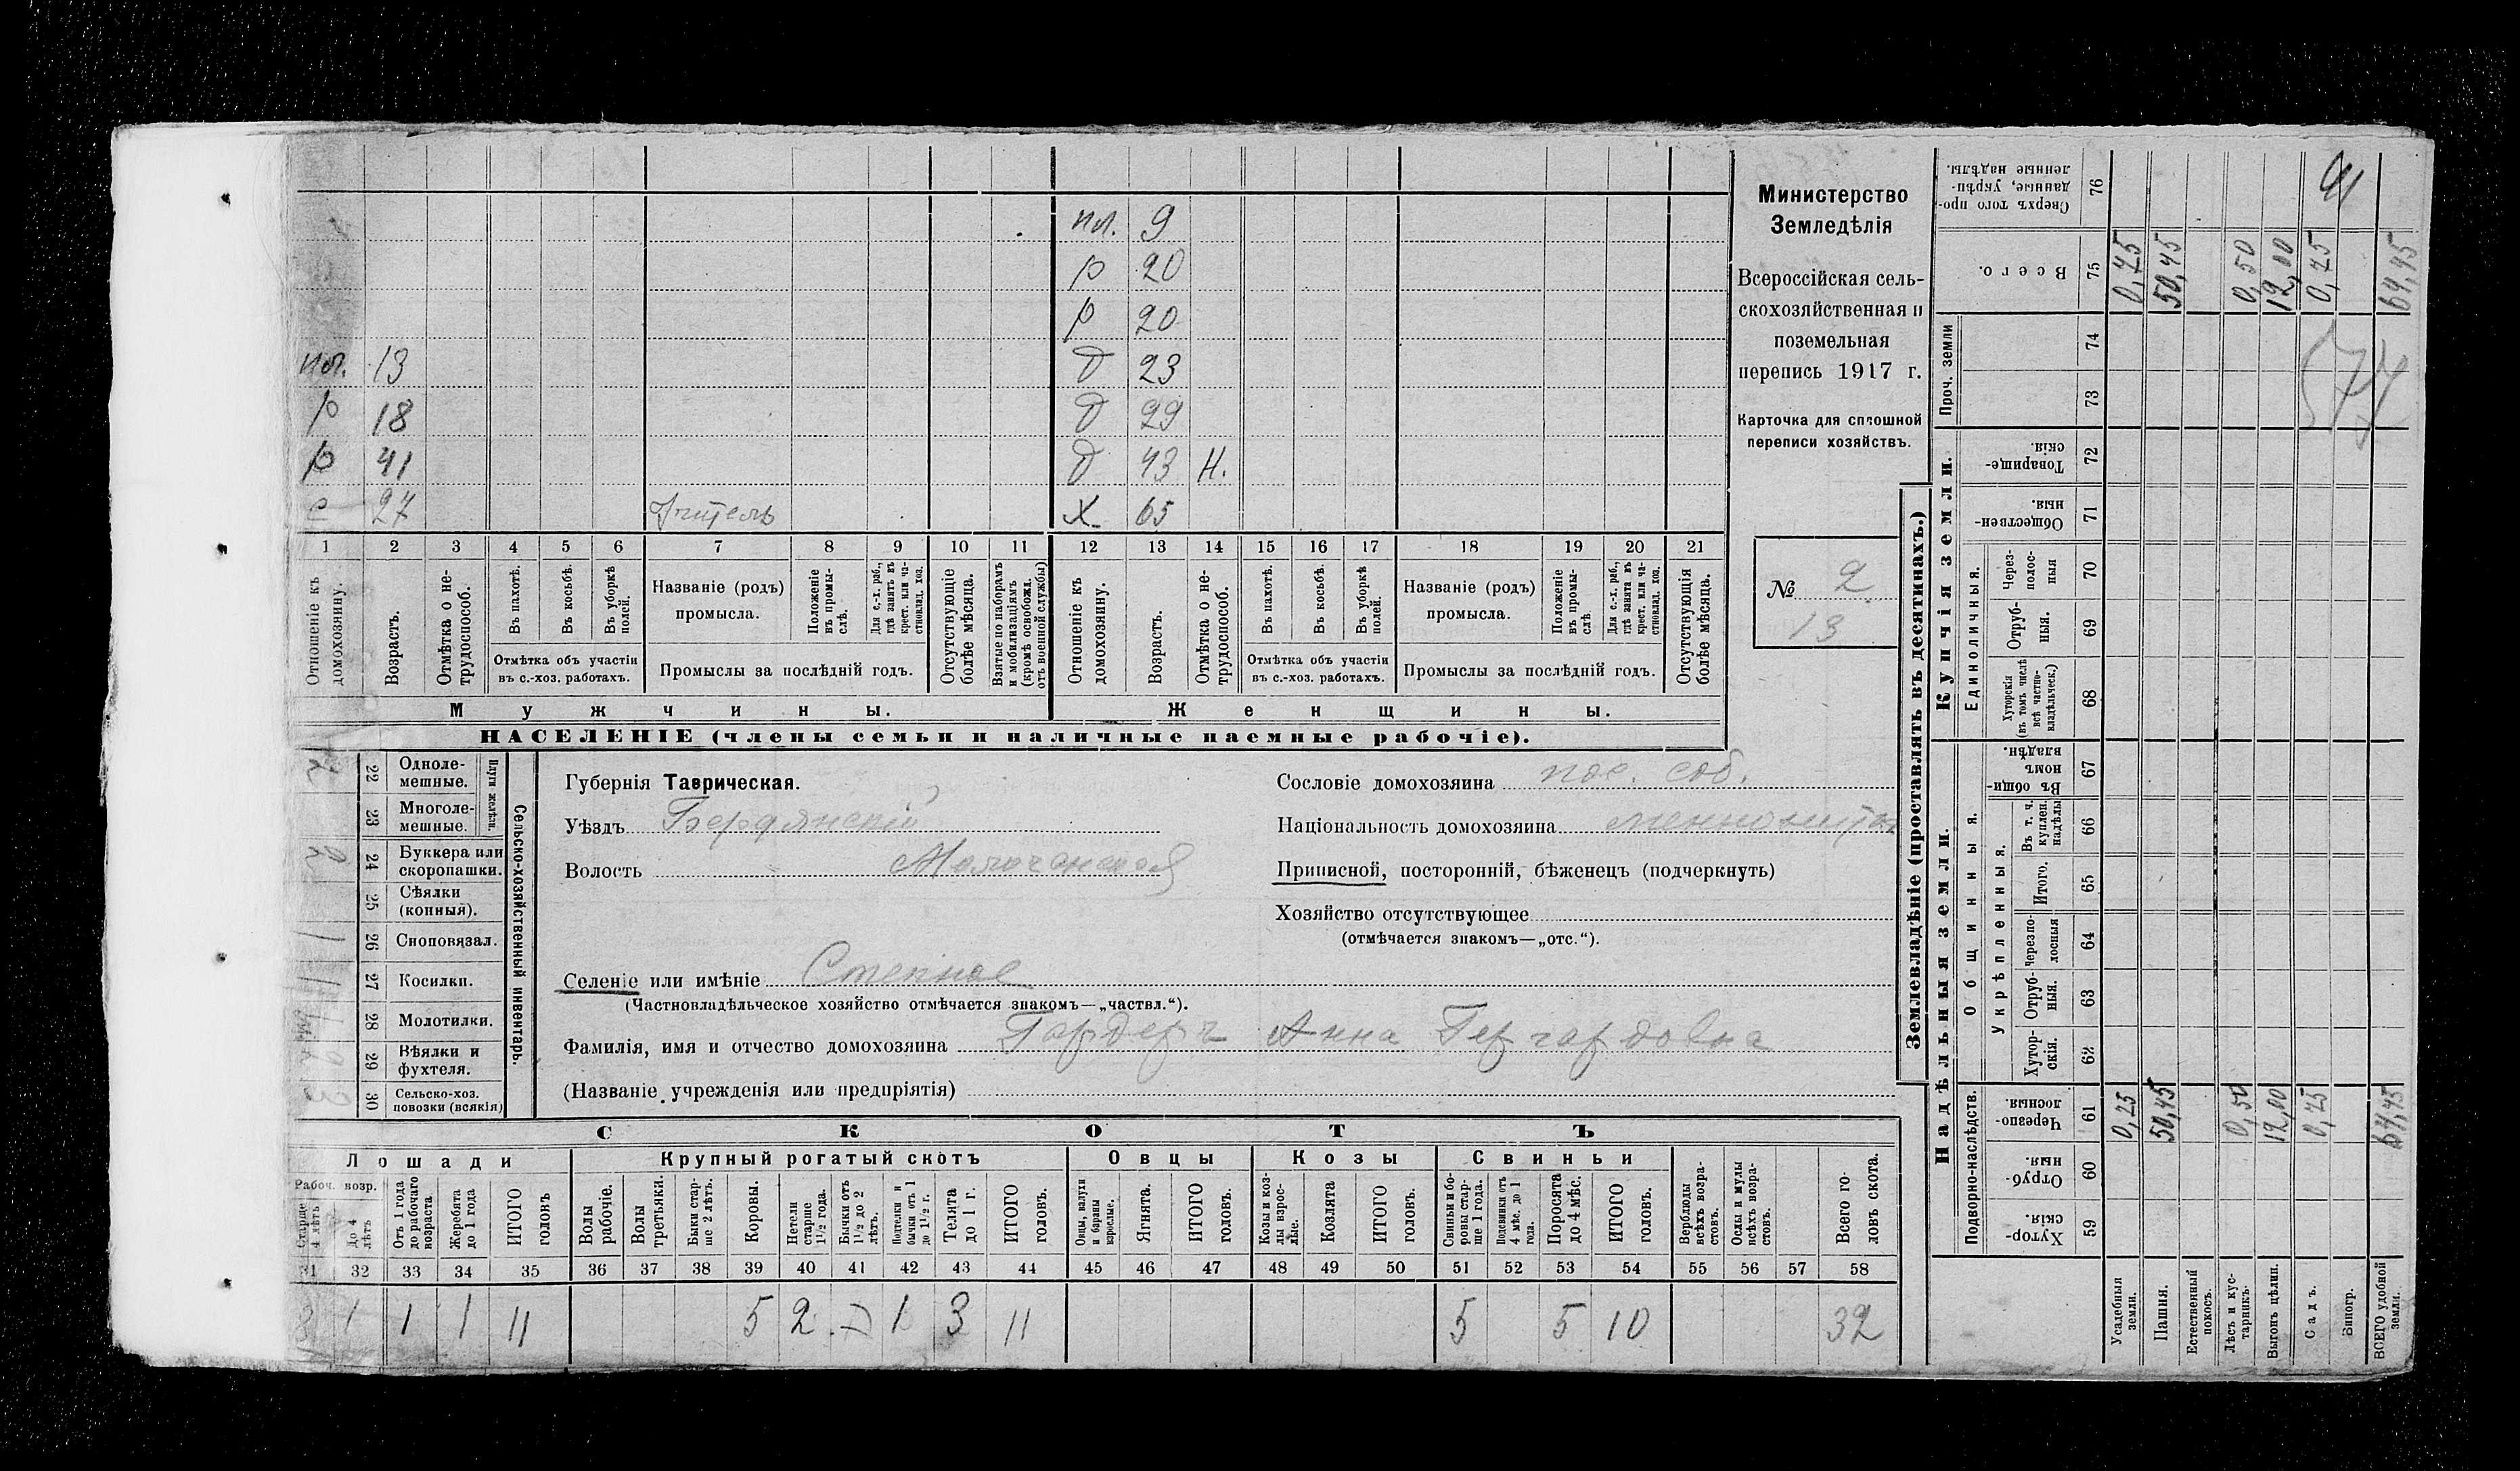 пл. 9
р 20
р 20
пол. 13 д 23
р 18 д 29
р 41 д 43 Н.
с 27 Учитель х. 65
1 2 3 4 5 6 7 8 9 10 11 12 13 14 15 16 17 18 19 20 21
Отношеніе къ домохозяину.
Возрастъ.
Отмѣтка о не-трудоспособ.
Въ пахотѣ.
Въ косьбѣ.
Въ уборкѣ полей.
Отмѣтка объ участіи
въ с.-хоз. работахъ.
Названіе (родъ)
промысла.
Положеніе въ промы-слѣ.
Для с.-х. раб., гдѣ занятъ въ крест. или ча-стновлад. хоз.
Промыслы за послѣдній годъ.
Отсутствующіе болѣе мѣсяца.
Взятые по наборамъ и мобилизаціямъ (кромѣ освобожд. отъ военной службы)
Отношеніе къ домохозяину.
Возрастъ.
Отмѣтка о не-трудоспособ.
Въ пахотѣ.
Въ косьбѣ.
Въ уборкѣ полей.
Отмѣтка объ участіи
въ с.-хоз. работахъ.
Названіе (родъ)
промысла.
Положеніе въ промы-слѣ
Для с.-х. раб., гдѣ занята въ крест. или ча-стновлад. хоз.
Промыслы за послѣдній годъ.
Отсутствующія болѣе мѣсяца.
Мужчины. Женщины.
НАСЕЛЕНІЕ (члены семьи и наличные наемные рабочіе).
Министерство
Земледѣлія
Всероссійская сель-
скохозяйственная и
поземельная
перепись 1917 г.
Карточка для сплошной
переписи хозяйствъ.
№ 2
13
Сельско-хозяйственный инвентарь.
Плуги желѣзн.
22 Одноле-мешные.
23 Многоле-мешные.
24 Буккера или скоропашки.
25 Сѣялки (конныя).
26 Сноповязал.
27 Косилки.
28 Молотилки.
29 Вѣялки и фухтеля.
30 Сельско-хоз. повозки (всякія)
Губернія Таврическая.
Уѣздъ Бердянскій
Волость Молочанская
Сословіе домохозяина пос. соб.
Національность домохозяина меннонитка
Приписной, посторонній, бѣженец (подчеркнуть)
Хозяйство отсутствующее
(отмѣчается знакомъ—„отс.“).
Селеніе или имѣніе Степное
(Частновладѣльческое хозяйство отмѣчается знакомъ—„частвл.“).
Фамилія, имя и отчество домохозяина Гардеръ Анна Гергардовна
(Названіе учрежденія или предпріятія)
СКОТЪ
Лошади Крупный рогатый скотъ Овцы Козы Свиньи
Рабоч. возр.
Старше 4 лѣтъ
До 4 лѣтъ
Отъ 1 года до рабочаго возраста
Жеребята до 1 года
ИТОГО головъ
Волы рабочіе.
Волы третьяки.
Быки стар-ше 2 лѣтъ.
Коровы.
Нетели старше 1 1/2 года.
Бычки отъ 1 1/2 до 2 лѣтъ.
Подтелки и бычки отъ 1 до 1 1/2 г.
Телята до 1 г.
ИТОГО головъ.
Овцы, валухи и бараны взрослые.
Ягнята.
ИТОГО головъ.
Козы и коз-лы взрос-лые.
Козлята
ИТОГО головъ.
Свиньи и бо-ровы стар-ше 1 года.
Подсвинки отъ 4 мѣс. до 1 года.
Поросята до 4 мѣс.
ИТОГО головъ.
Верблюды всѣхъ возра-стовъ.
Ослы и мулы всѣхъ возра-стовъ.
Всего го-ловъ скота.
31 32 33 34 35 36 37 38 39 40 41 42 43 44 45 46 47 48 49 50 51 52 53 54 55 56 57 58
8 1 1 1 11 5 2 1 3 11 5 5 10 32
Землевладѣніе (проставлять въ десятинахъ.)
Надѣльныя земли. Купчія земли. Проч. земли
Подворно-наслѣдств.
Общинныя.
Укрѣпленныя.
Единоличныя.
59 Хутор-скія.
60 Отруб-ныя.
61 Черезпо-лосныя.
62 Хутор-скія.
63 Отруб-ныя.
64 Черезпо-лосныя
65 Итого.
66 Въ т. ч. куплен. надѣлы
67 Въ общи-номъ владѣн.
68 Хуторскія (въ томъ числѣ всѣ частно-владѣльческ.)
69 Отруб-ныя.
70 Через-полос-ныя
71 Обществен-ныя.
72 Товарище-скія.
73
74
75 Всего.
76 Сверхъ того про-данные, укрѣп-ленные надѣлы.
Усадебныя земли. 0,25 0,25
Пашня. 50,45 50,45
Естественный покосъ.
Лѣсъ и кус-тарникъ. 0,50 0,50
Выгонъ цѣлин. 12,00 12,00
Садъ. 0,25 0,25
Виногр.
ВСЕГО удобной земли. 64,45 64,45
91
577